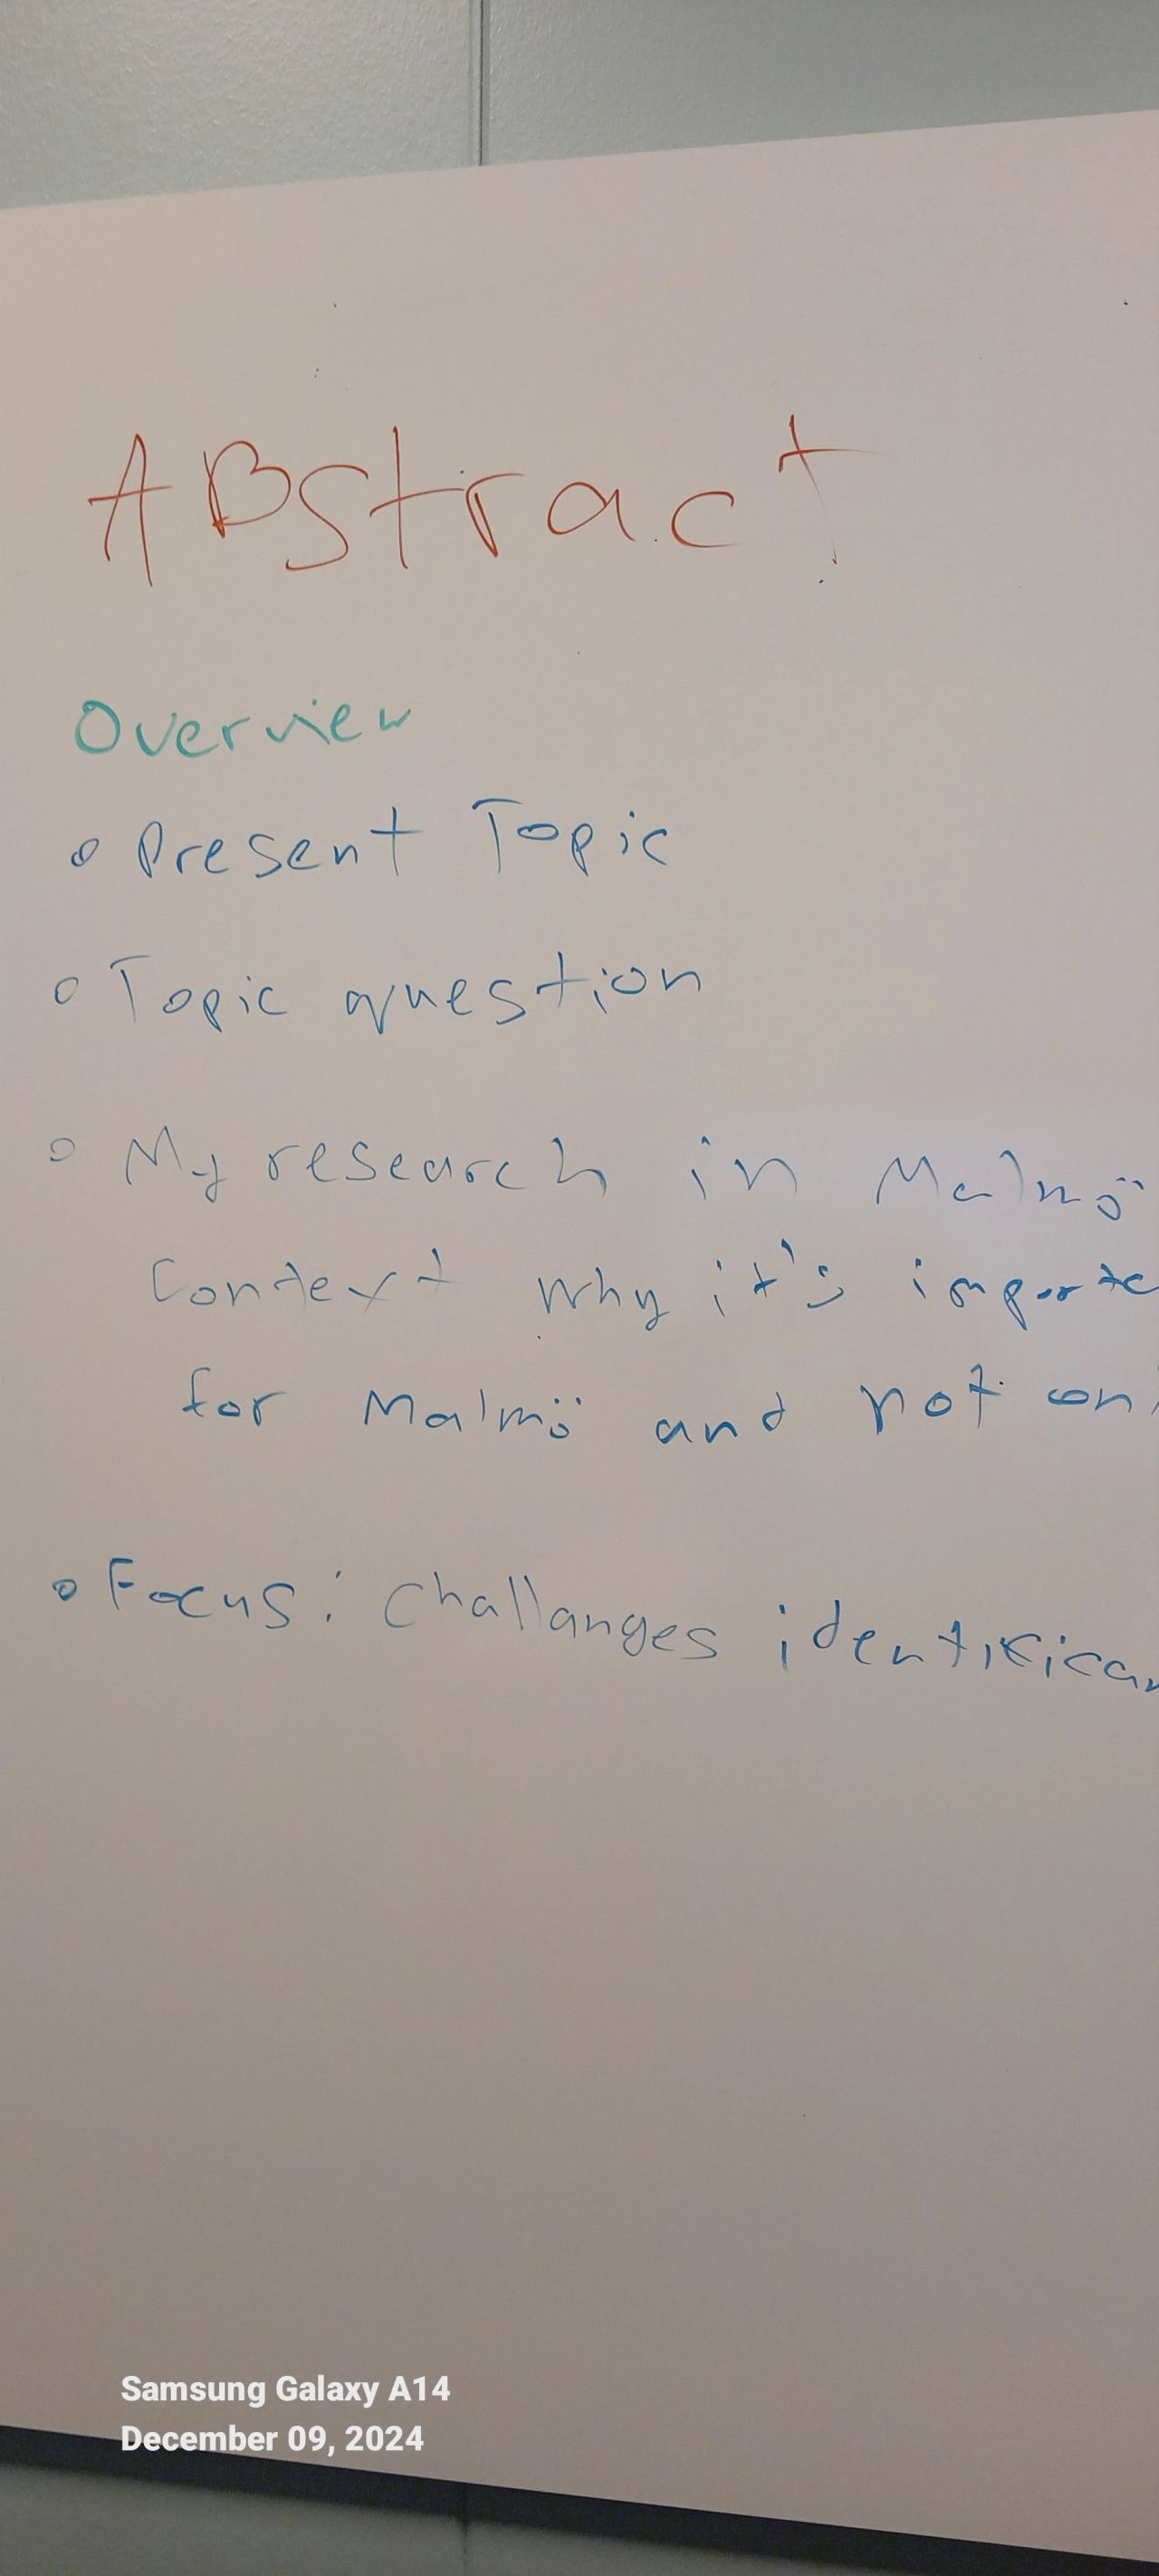 ABstract
Overview
o Present Topic
o Topic question
o My research in Malmö
Context why it's importa
for Malmö and not on
o Focus: Challanges identifica
Samsung Galaxy A14
December 09, 2024